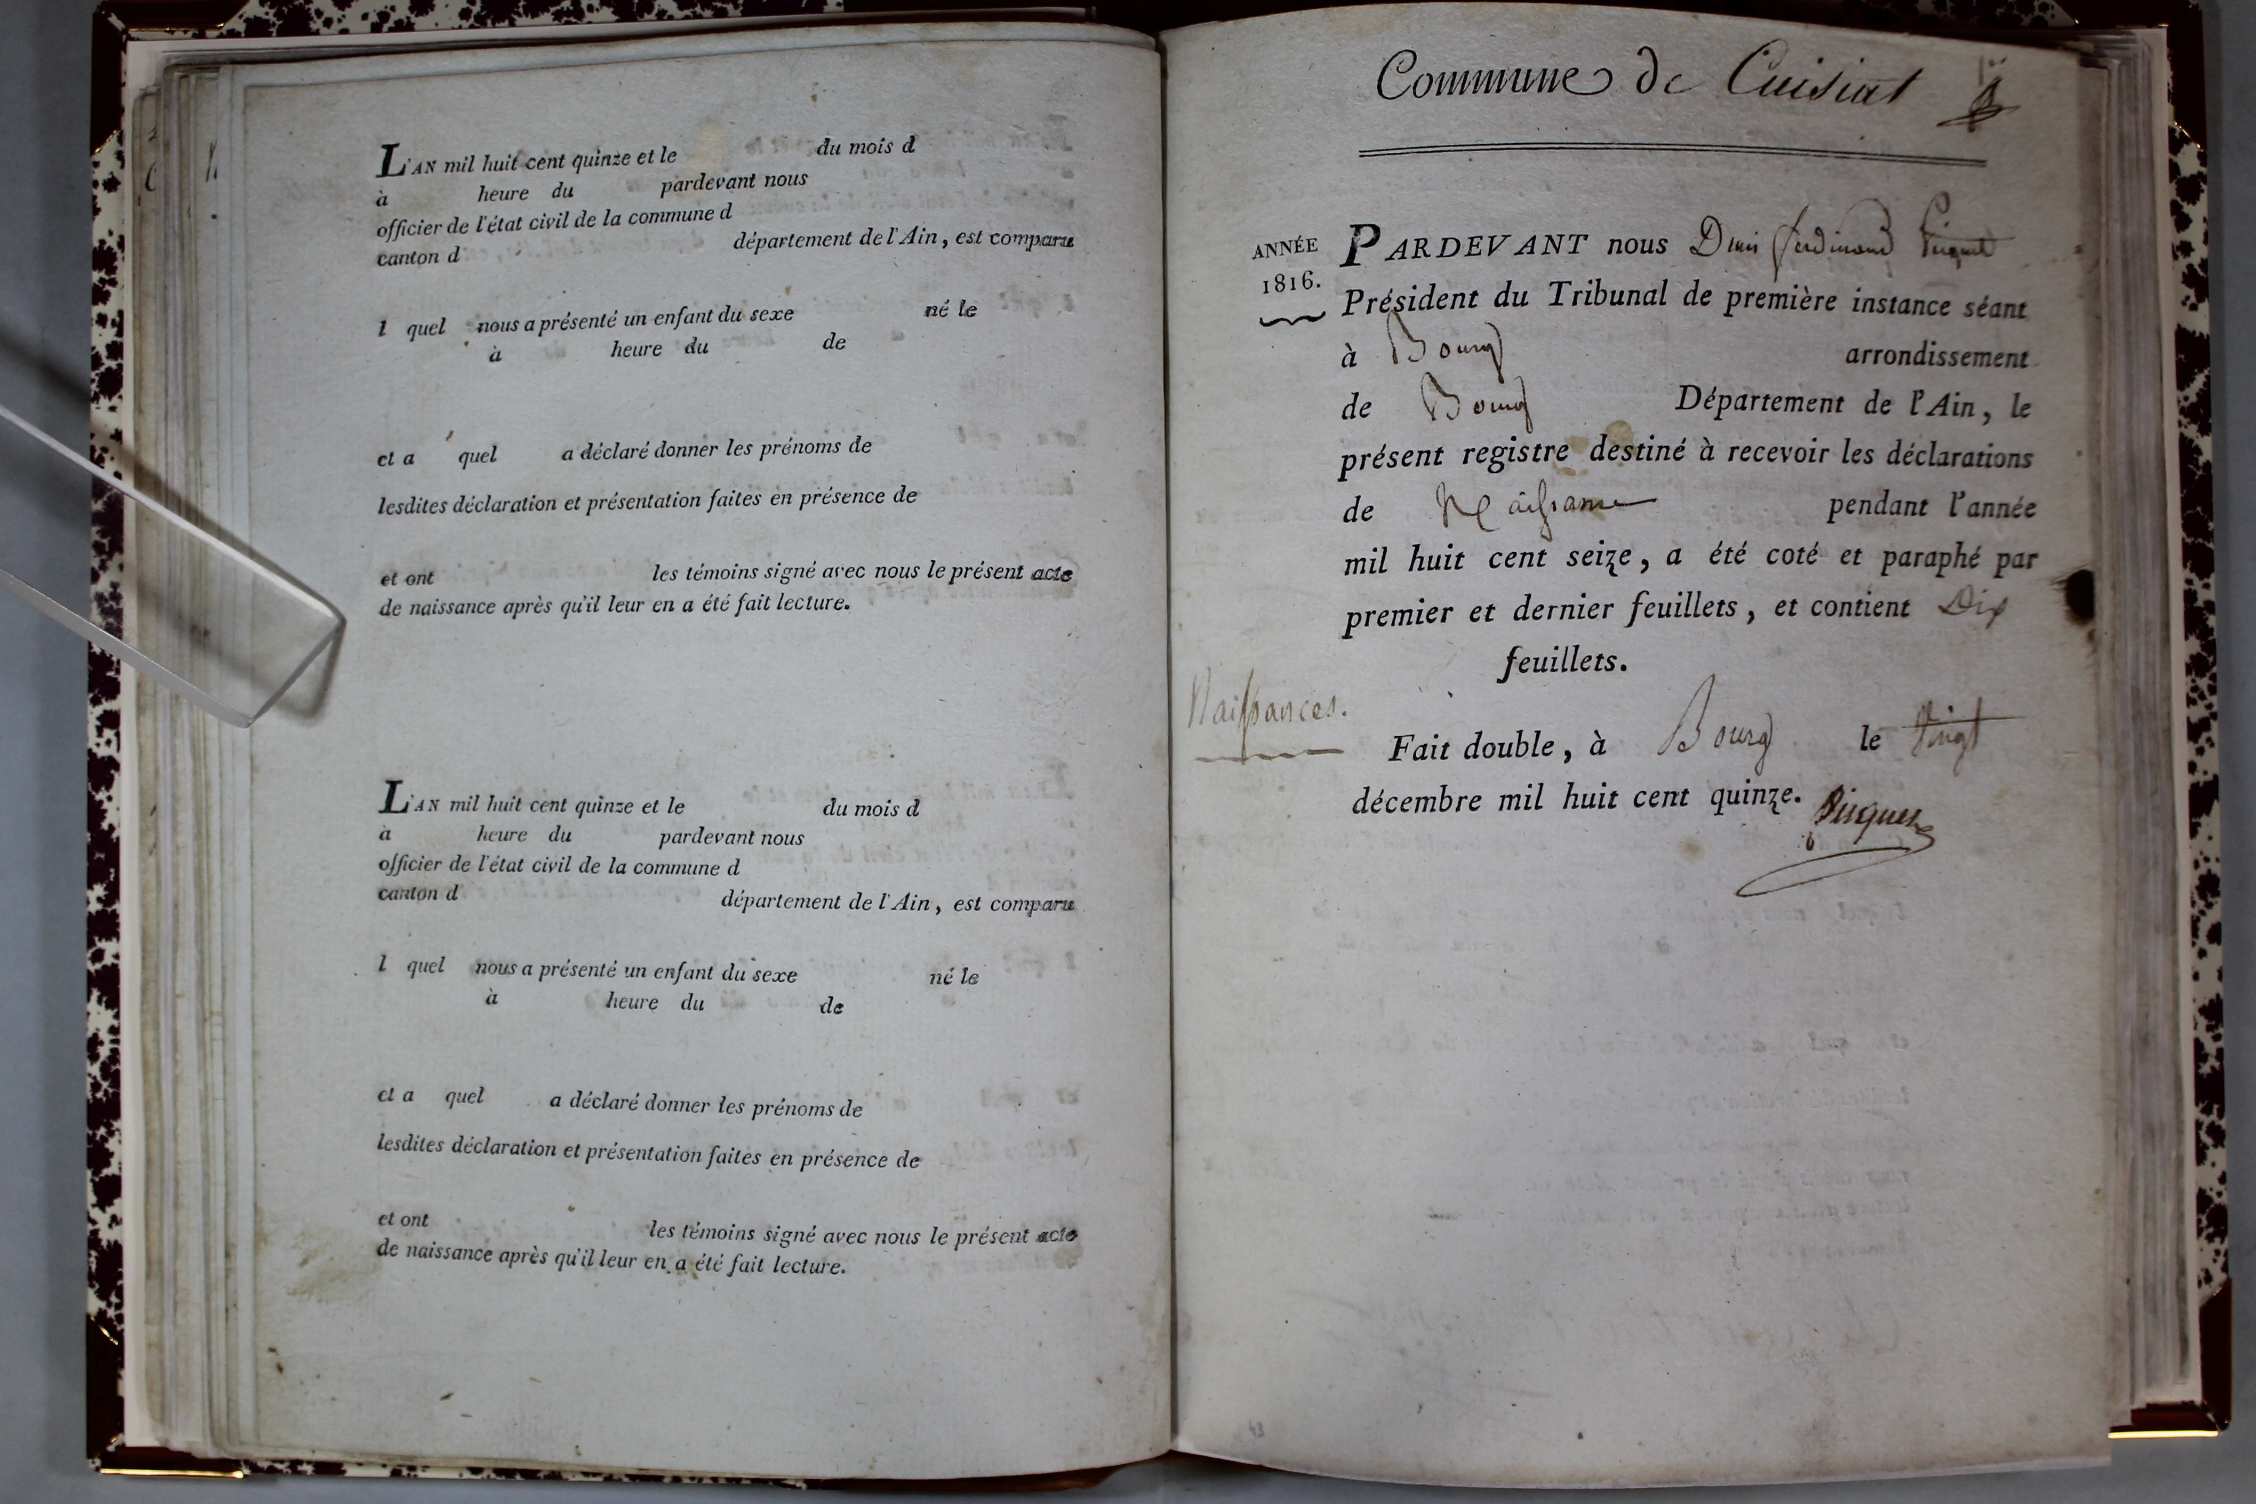 L'AN mil huit cent quinze et le du mois d
à heure du pardevant nous
officier de l'état civil de la commune d
canton d département de l'Ain, est comparu
l quel nous a présenté un enfant du sexe né le
à heure du de
et a quel a déclaré donner les prénoms de
lesdites déclaration et présentation faites en présence de
et ont les témoins signé avec nous le présent acte
de naissance après qu'il leur en a été fait lecture.
L'AN mil huit cent quinze et le du mois d
à heure du pardevant nous
officier de l'état civil de la commune d
canton d département de l'Ain, est comparu
l quel nous a présenté un enfant du sexe né le
à heure du de
et a quel a déclaré donner les prénoms de
lesdites déclaration et présentation faites en présence de
et ont les témoins signé avec nous le présent acte
de naissance après qu'il leur en a été fait lecture.
Commune de Cuisiat
ANNÉE
1816.
PARDEVANT nous Denis ferdinand Piquet
Président du Tribunal de première instance séant
à Bourg arrondissement
de Bourg Département de l'Ain, le
présent registre destiné à recevoir les déclarations
de Naissance pendant l'année
mil huit cent seize, a été coté et paraphé par
premier et dernier feuillets, et contient Dix
feuillets.
Naissances.
Fait double, à Bourg le Vingt
décembre mil huit cent quinze.
Piquet
43